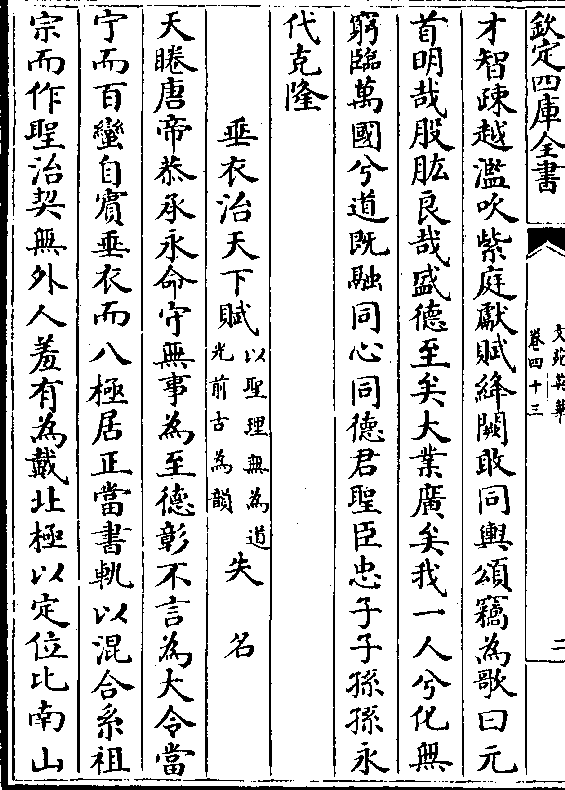 欽定四庫全書
文苑英華
卷四十三
二
才智疎越濫吹紫庭獻賦絳闕敢同輿頌竊為歌曰元
首明哉股肱良哉盛德至矣大業廣矣我一人兮化無
窮臨萬國兮道既融同心同德君聖臣忠子子孫孫永
代克隆
垂衣治天下賦以聖理無為道光前古為韻失名
天睠唐帝恭承永命守無事為至德彰不言為大令當
宁而百蠻自賓垂衣而八極居正當書軌以混合系祖
宗而作聖治契無外人羞有為戴北極以定位比南山